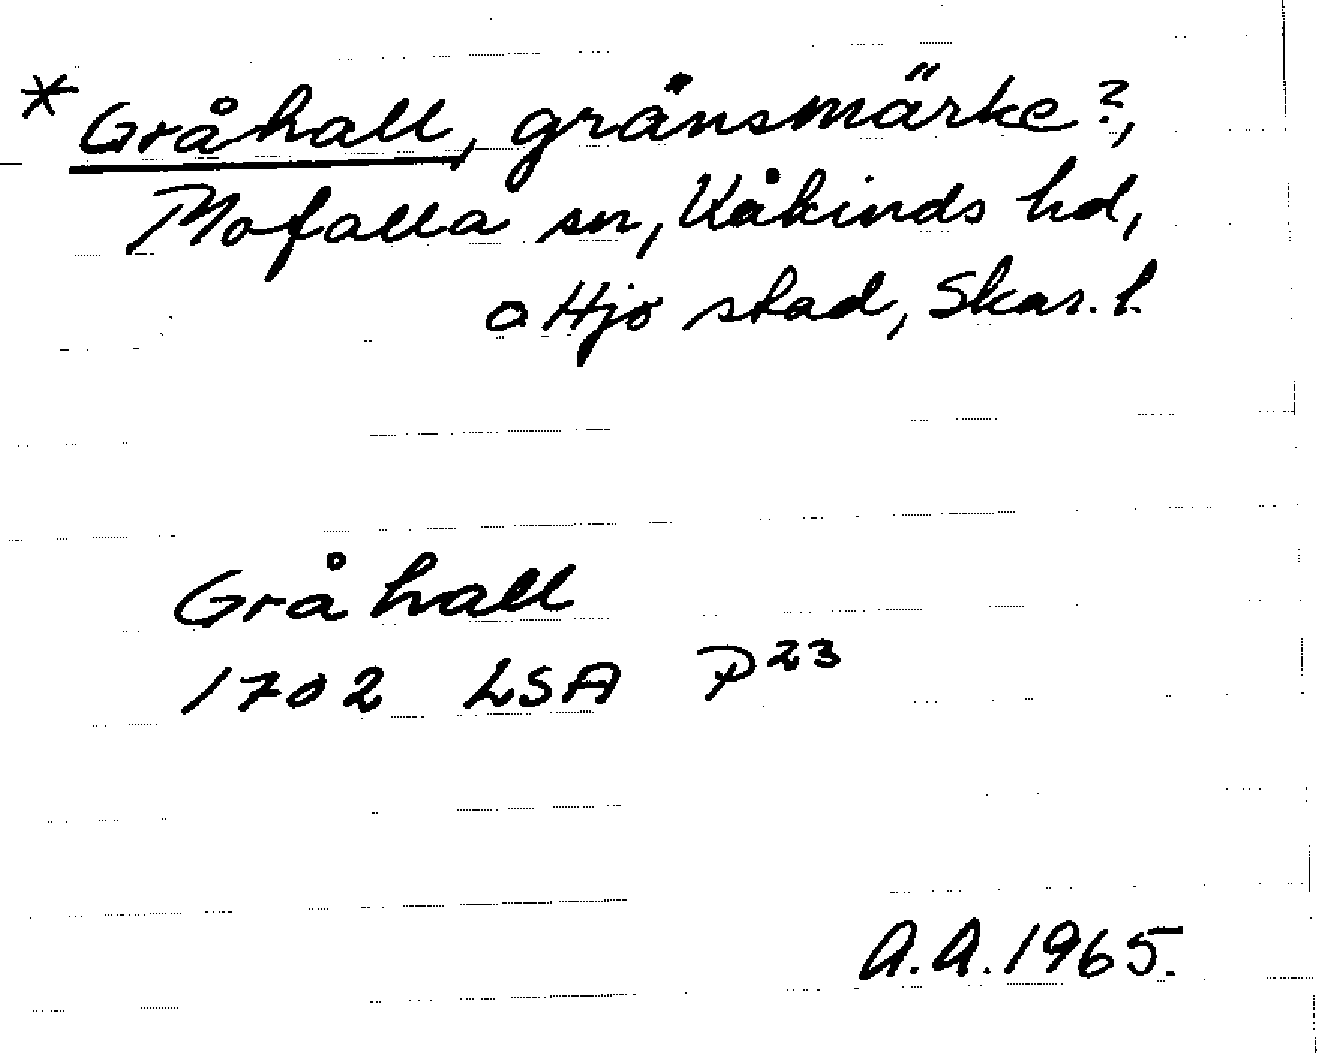 * Gråhall, gränsmärke?,
Mofalla sn, Kåkinds hd,
o Hjo stad, Skar. l.
Gråhall
1702 LSA P23
A.A. 1965.